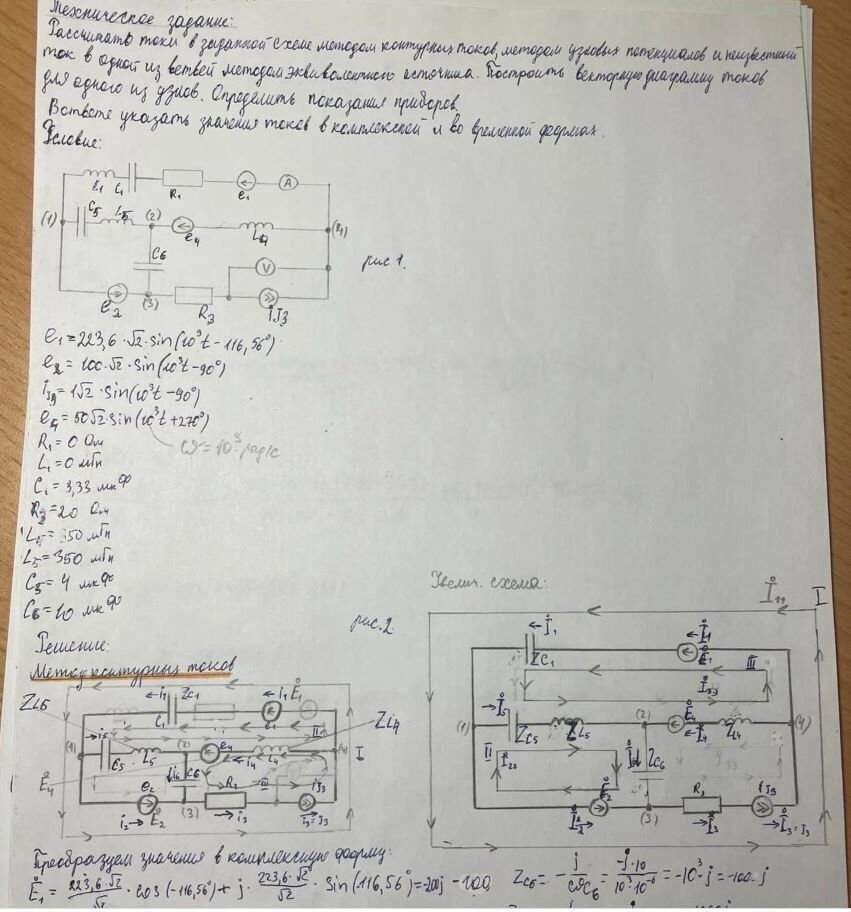 Техническое задание:
Рассчитать токи в заданной схеме методом контурных токов, методом узловых потенциалов и неизвестный
ток в одной из ветвей методом эквивалентного источника. Построить векторную диаграмму токов
для одного из узлов. Определить показания приборов.
В ответе указать значения токов в комплексной и во временной формах.
Условие:
L1 C1 R1 e1 A
(1) C5 L5 (2) e4 L4 (4)
C6 V
e2 (3) R3 iJ3
рис 1.
e1=223,6·√2·sin(10³t-116,56°)
e2= 100·√2·sin(10³t-90°)
iJ3=1√2·sin(10³t-90°)
e4=50√2·sin(10³t+270°)
ω=10³ рад/с
R1=0 Ом
L1=0 мГн
C1=3,33 мкФ
R3=20 Ом
L4=350 мГн
L5=350 мГн
C5=4 мкФ
C6=10 мкФ
Решение:
рис.2
Увелич. схема:
Метод контурных токов
ZL5 i1 ZC1 i1 E1
C1 e1 ZL4
(1) i5 C5 L5 (2) e4 L4 i4 (4) I
E4 i6 C6 R3 III
i2 e2 E2 (3) i3 iJ3
I11 I
I1 ZC1 I1 E1 III
I33
I5 (1) ZC5 ZL5 (2) E4 I4 ZL4 (4)
II I22 I6 ZC6
E2 I2 (3) R3 I3 iJ3
Преобразуем значения в комплексную форму:
E1 = 223,6·√2/√2 · cos(-116,56°)+ j· 223,6·√2/√2 · sin(-116,56°)=-200j -100
ZC6= -j/ωC6 = -j·10/10³·10⁻⁶ =-10⁻³·j=-100·j